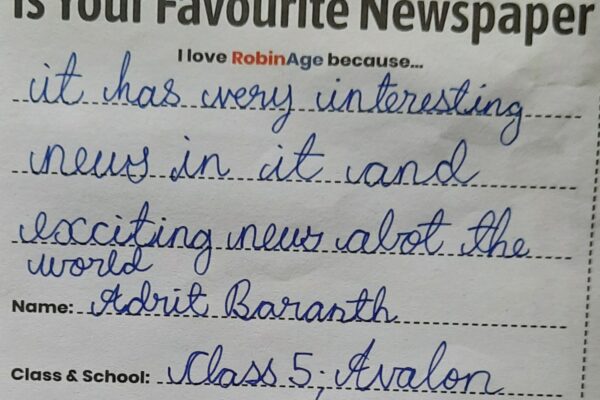 is Your Favourite Newspaper
I love RobinAge because...
it has very interesting
news in it and
exciting news abot the
world
Name: Adrit Baranth
Class & School: Class 5, Avalon